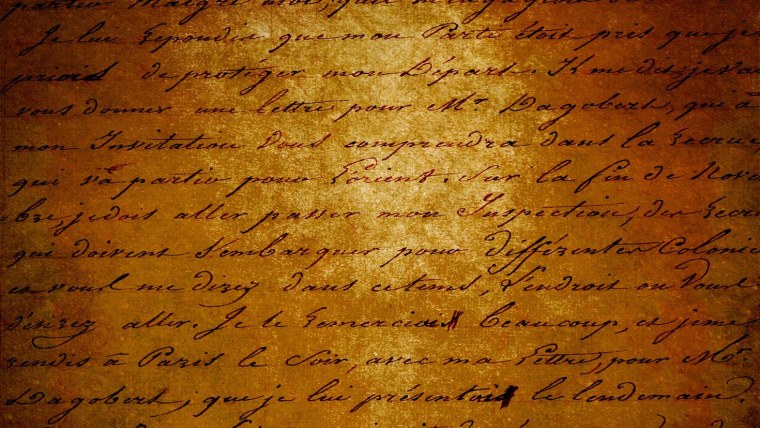 partir Malgré
Je lui Repondis que mon Parti étoit pris que je
priois de protéger mon Départ. Il me dit, je vai
vous donner une lettre pour Mr. Dagobert, qui à
mon Invitation Vous comprendra dans la Recrue
qui va partir pour L'orient. Sur la fin de Nove
bre, je dois aller passer mon Inspection, des Recru
qui doivent S'embarquer pour différentes Colonie
et vous me direz dans ce tems, L'endroit ou Vous
désirez aller. Je le Remerciois beaucoup, et je me
rendis à Paris le Soir, avec ma Lettre, pour Mr.
Dagobert, que je lui présentois le lendemain.